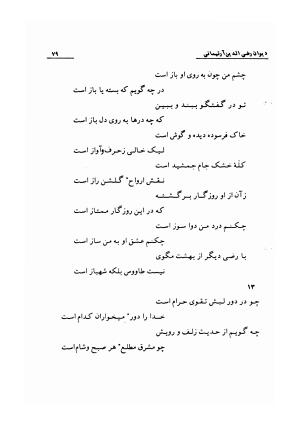 دیوان رضی الدین آرتیمانی ۷۹
چشم من چون به روی او باز است
در چه گویم که بسته یا باز است
تو در گفتگو ببند و ببین
که چه درها به روی دل باز است
خاک فرسوده دیده و گوش است
لیک خالی زحرف وآواز است
کلهٔ خشک جام جمشید است
نقش ارواح* گلشن راز است
زآن از او روزگار برگشته
که در این روزگار ممتاز است
چکنم درد من دوا سوز است
چکنم عشق او به من ساز است
با رضی دیگر از بهشت مگوی
نیست طاووس بلکه شهباز است
۱۳
چو در دور لبش تقوی حرام است
خدا را دور* میخواران کدام است
چه گویم از حدیث زلف و رویش
چو مشرق مطلع* هر صبح وشام است